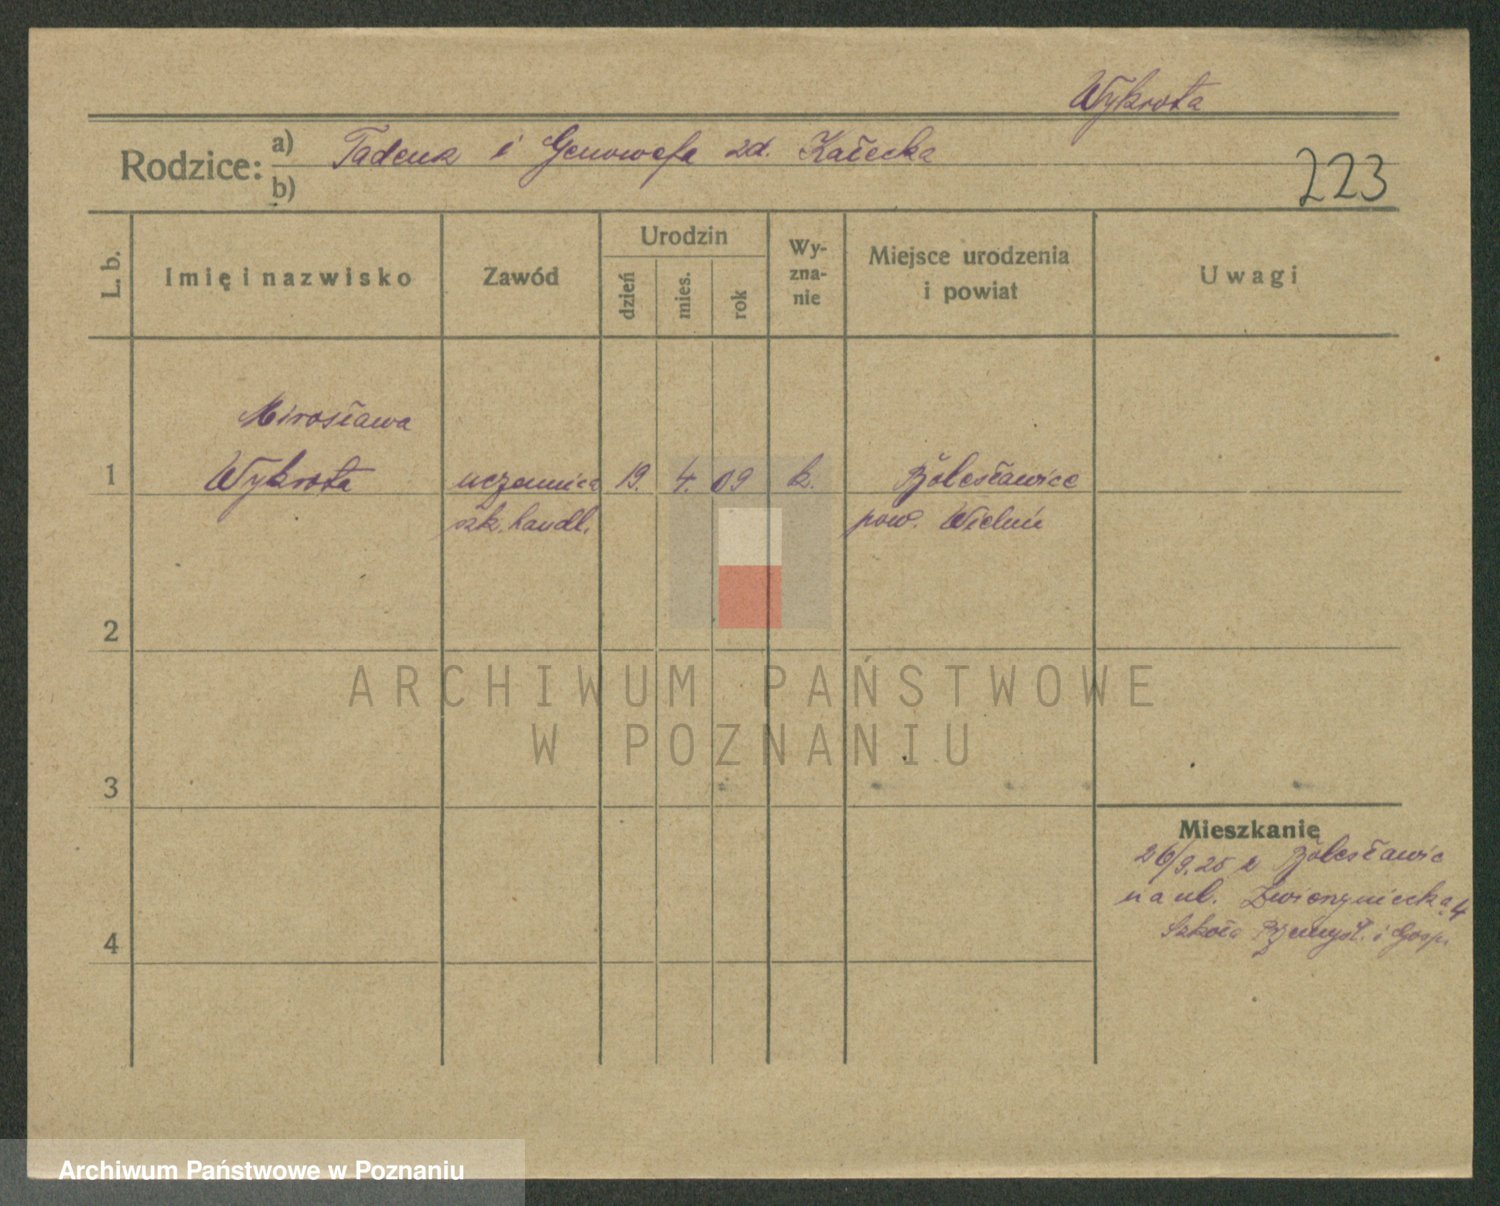 Wykrota
Rodzice: a) Tadeusz i Genowefa zd. Kałecka
b)
223
L. b. Imię i nazwisko Zawód Urodzin dzień mies. rok Wy-zna-nie Miejsce urodzenia i powiat Uwagi
Mirosława
1 Wykrota uczennica 19. 4. 09 k. Bolesławice
szk. handl. pow. Wieluń
2
ARCHIWUM PAŃSTWOWE
W POZNANIU
3
Mieszkanie
26/9.25 z Bolesławic
na ul. Zwierzyniecka 4
Szkoła Przemysł. i Gosp.
4
Archiwum Państwowe w Poznaniu